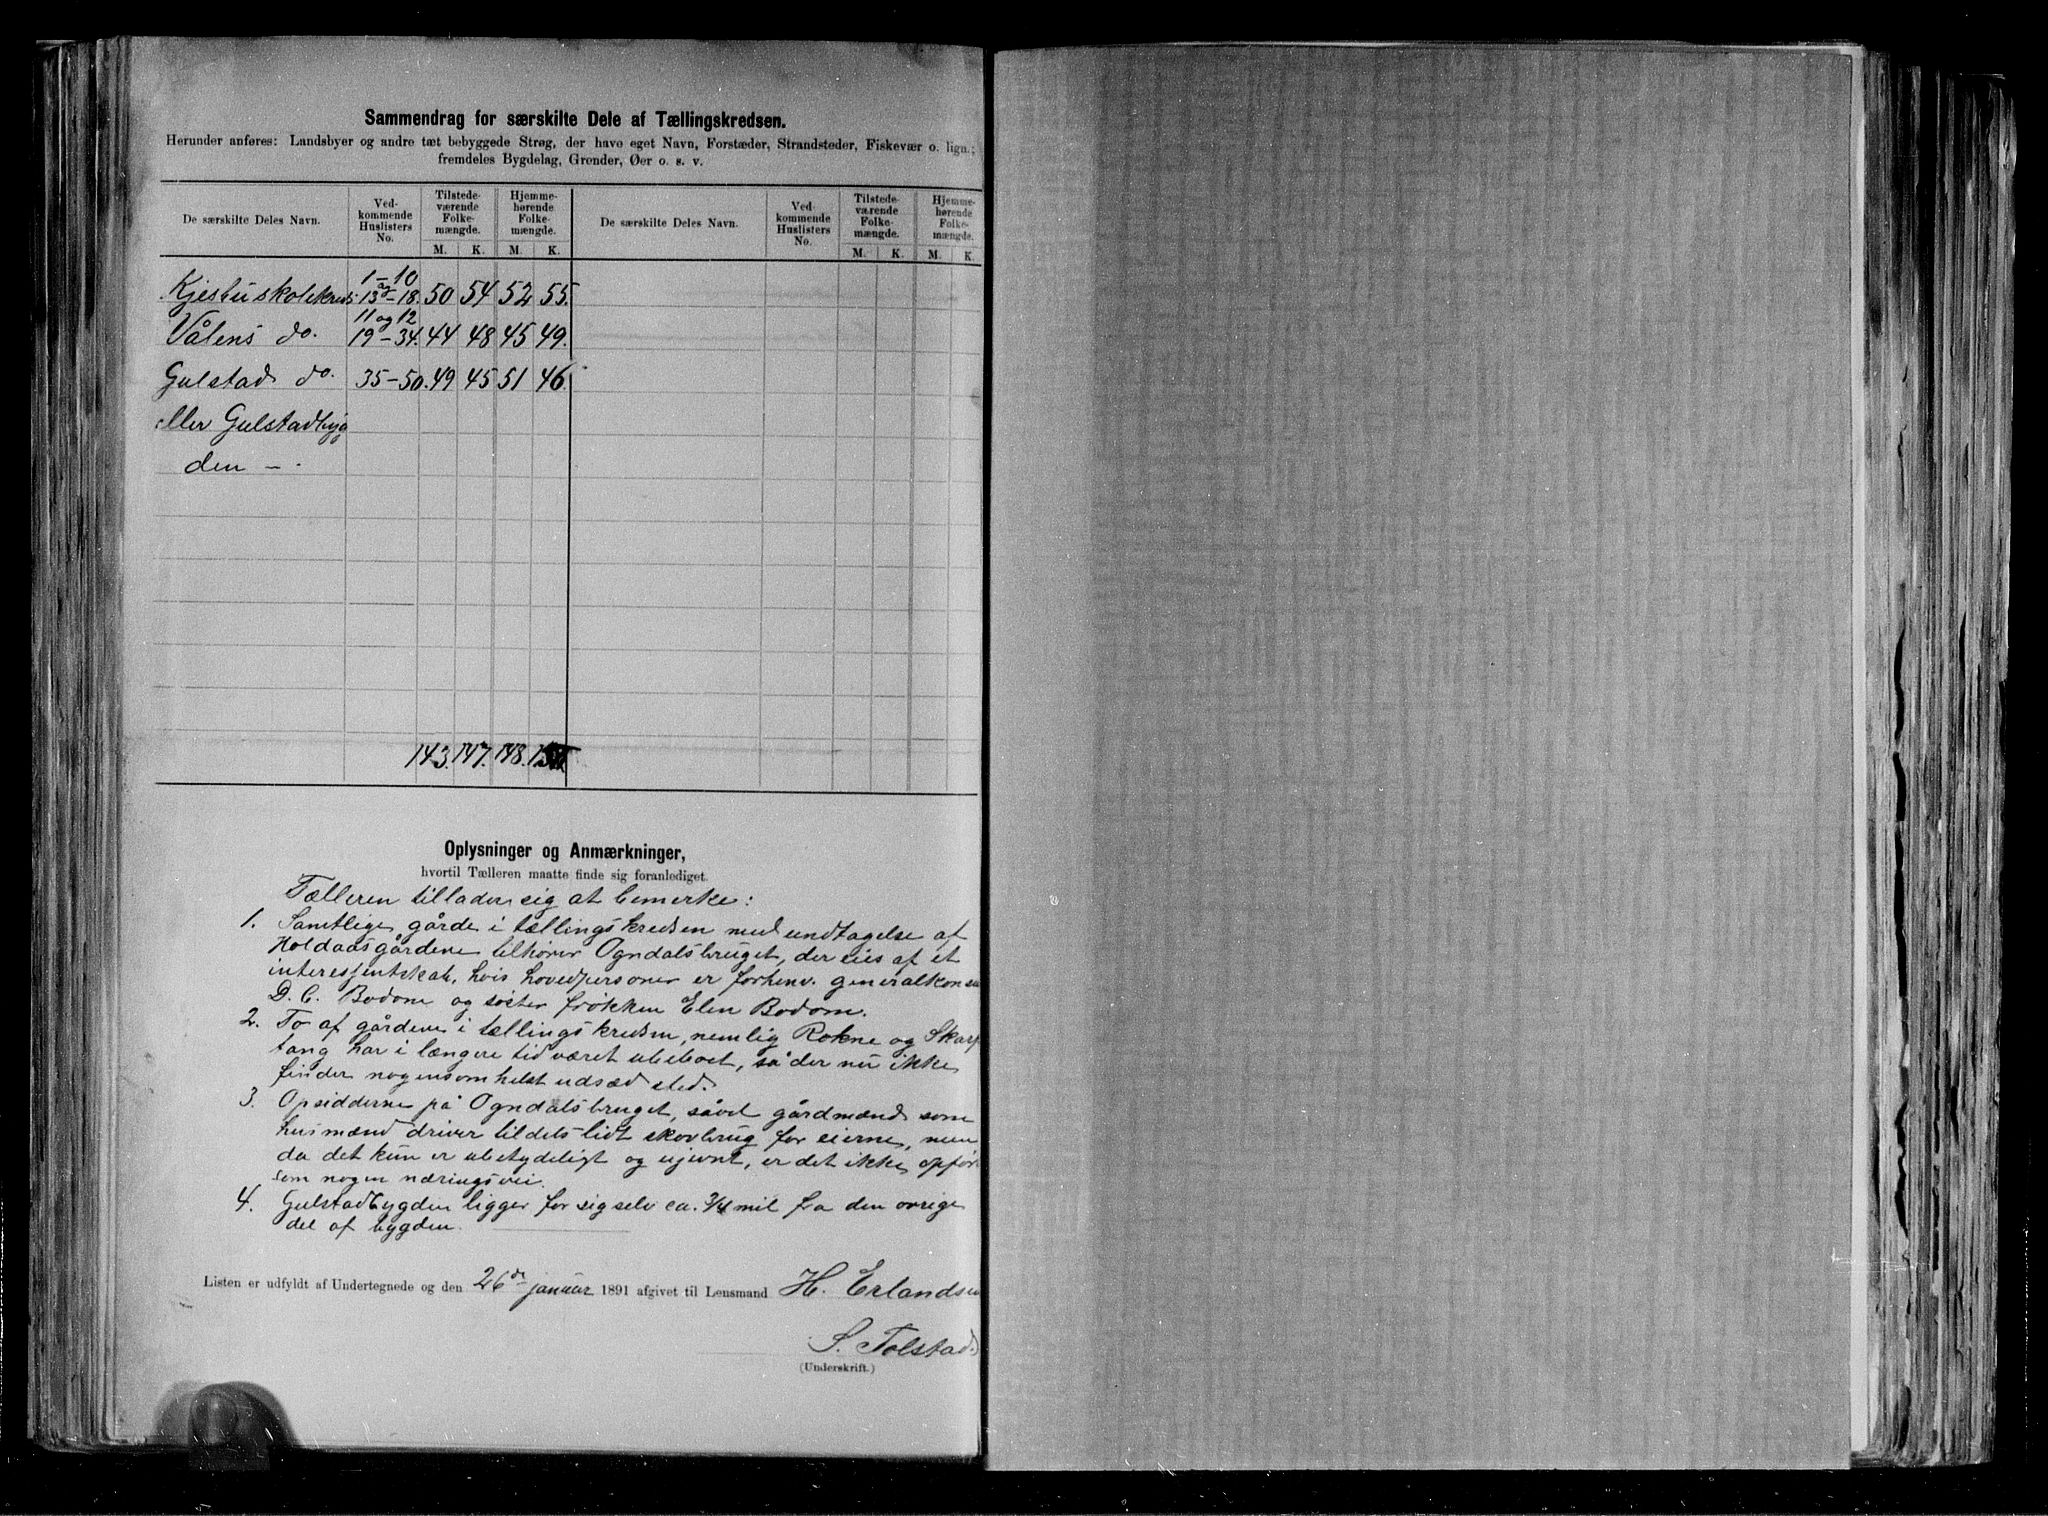 Sammendrag for særskilte Dele af Tællingskredsen.
Herunder anføres: Landsbyer og andre tæt bebyggede Strøg, der have eget Navn, Forstæder, Strandsteder, Fiskevær o. lign.;
fremdeles Bygdelag, Grender, Øer o. s. v.
De særskilte Deles Navn. Ved-kommende Huslisters No. Tilstede-værende Folke-mængde. Hjemme-hørende Folke-mængde. De særskilte Deles Navn. Ved-kommende Huslisters No. Tilstede-værende Folke-mængde. Hjemme-hørende Folke-mængde.
M. K. M. K. M. K. M. K.
1-10 og
13-18. 50 54 52 55.
11 og 12
Vålens do. 19-34. 44 48 45 49.
Gulstad do. 35-50. 49 45 51 46.
eller Gulstadbyg
den - .
143. 147. 148.
Oplysninger og Anmærkninger,
hvortil Tælleren maatte finde sig foranlediget.
Tælleren tillader sig at bemerke:
1. Samtlige gårde i tællingskredsen med undtagelse af
Holdaasgårdene tilhører Ogndalsbruget, der eies af et
interessentskab, hvis hovedpersoner er forhenv. generalkonsu
D. C. Bodom og søster frøkken Elen Bodom.
2. To af gårdene i tællingskredsen, nemlig Rokne og Skarp
tang har i længere tid været ubeboet, så der nu ikke
finder nogensomhelst udsæd sted.
3. Opsidderne på Ogndalsbruget, såvel gårdmænd som
husmænd driver tildels lidt skovbrug for eierne, men
da det kun er ubetydeligt og ujevnt, er det ikke opfør
som nogen næringsvei.
4. Gulstadbygden ligger for sig selv ca. 3/4 mil fra den øvrige
del af bygden.
Listen er udfyldt af Undertegnede og den 26de januar 1891 afgivet til Lensmand H. Erlandsen
S. Tolstad.
(Underskrift.)